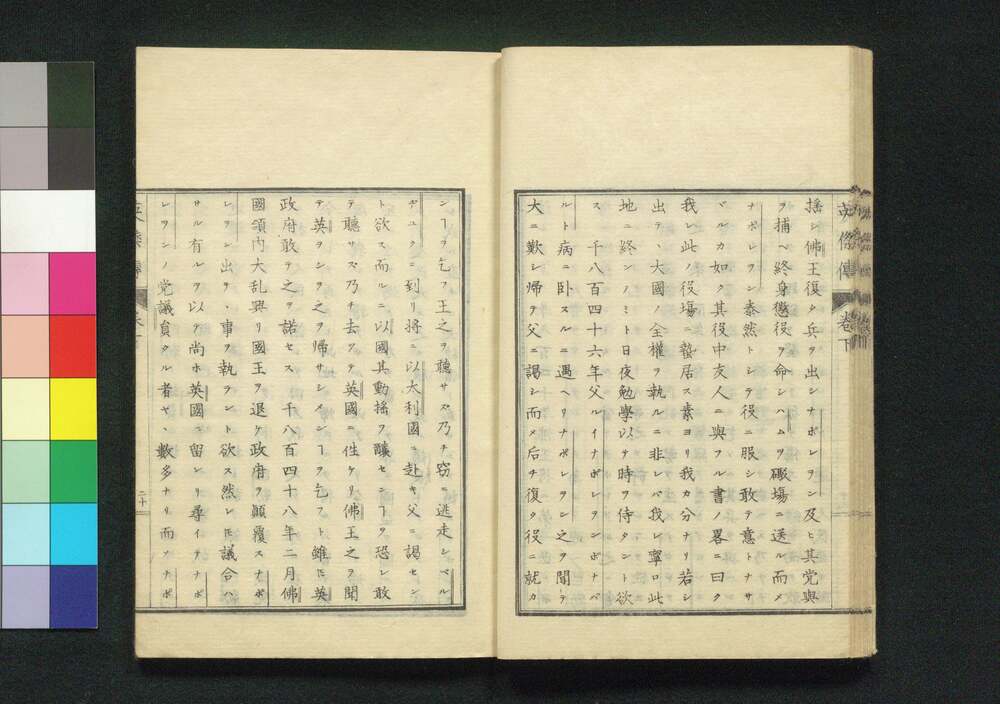 英傑傳 卷下
搖シ佛王復タ兵ヲ出シナポレヲン及ヒ其党與
ヲ捕ヘ終身懲役ヲ命シハムヲ礟塲ニ送ル而メ
ナポレヲン泰然トシテ役ニ服シ敢テ意トナサ
ヾルカ如ク其役中友人ニ與フル書ノ畧ニ曰ク
我レ此ノ役塲ニ蟄居ス素ヨリ我カ分ナリ若シ
出テヽ大國ノ全權ヲ執ルニ非レバ我レ寧ロ此
地ニ終ンノミト日夜勉學以テ時ヲ侍タント欲
ス 千八百四十六年父ルイナポレヲンボナパ
ルト病ニ卧スルニ遇ヘリナポレヲン之ヲ聞テ
大ニ歎シ帰テ父ニ謁シ而メ后チ復タ役ニ就カ
ンヿヲ乞フ王之ヲ聽サス乃チ窃ニ逃走シベル
ヂユクニ到リ将ニ以太利國ニ赴キ父ニ謁セン
ト欲ス而ルニ以國其動搖ヲ釀センヿヲ恐レ敢
テ聽サス乃チ去ツテ英國ニ徃ケリ佛王之ヲ聞
テ英ヲシテ之ヲ帰サシメンヿヲ乞フト雖𪜈英
政府敢テ之ヲ諾セス 千八百四十八年二月佛
國領内大乱興リ國王ヲ退ケ政府ヲ顚覆スナポ
レヲン出テ事ヲ執ラント欲ス然レ𪜈議合ハ
サル有ルヲ以テ尚ホ英國ニ留レリ尋イテナポ
レヲンノ党議員タル者ヤヽ數多ナリ而メナポ
二十